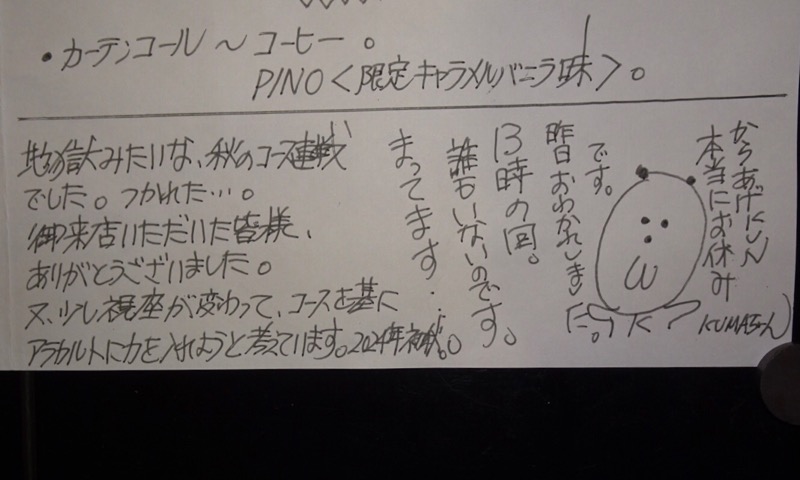 ・カーテンコール～コーヒー。
PINO＜限定キャラメルバニラ味＞。
地獄みたいな、秋のコース連戦
でした。つかれた…。
御来店いただいた皆様、
ありがとうございました。
又、少し視座が変わって、コースを基に
アラカルトに力を入れようと考えています。2024年初秋。
からあげKUN
本当にお休み
です。
昨日おわかれしました。
13時の回。
誰もいないのです。
まってます…
OK?
KUMAちゃん